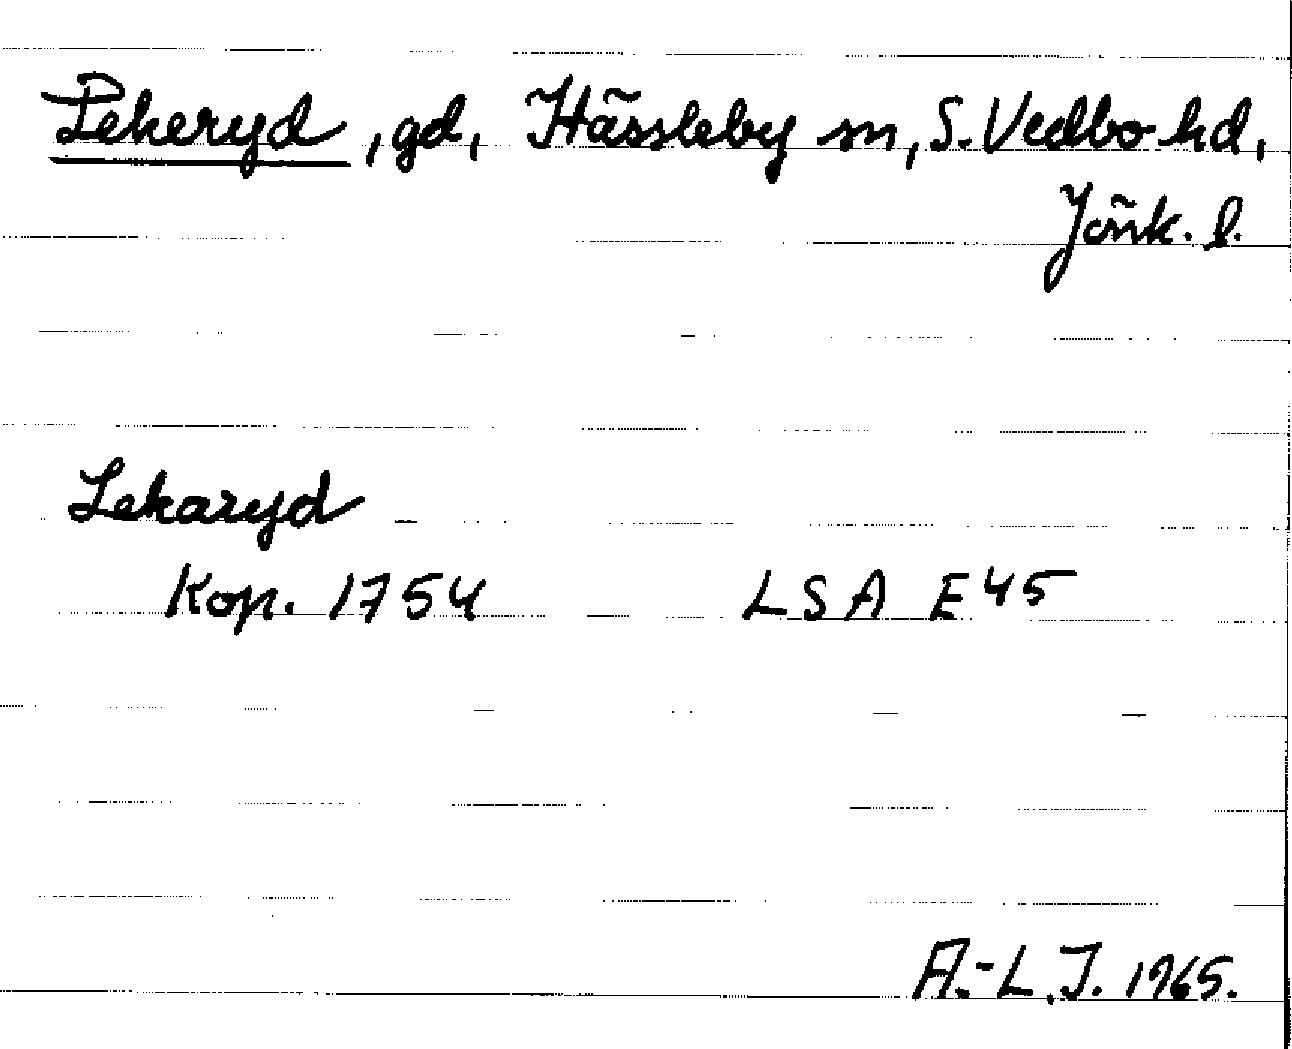 Lekeryd, gd, Hässleby sn, S. Vedbo hd,
Jönk. l.
Lekaryd
Kop. 1754 LSA E45
A.-L.J. 1965.